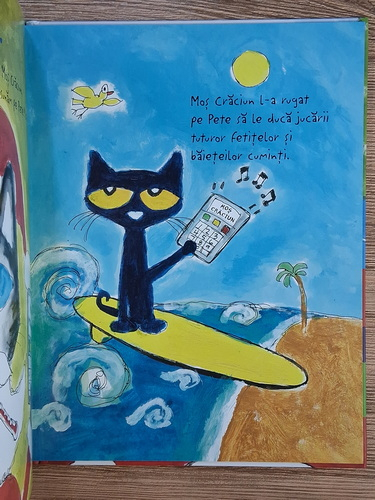 Moș Crăciun l-a rugat
pe Pete să le ducă jucării
tuturor fetițelor și
băiețeilor cuminți.
MOȘ
CRĂCIUN